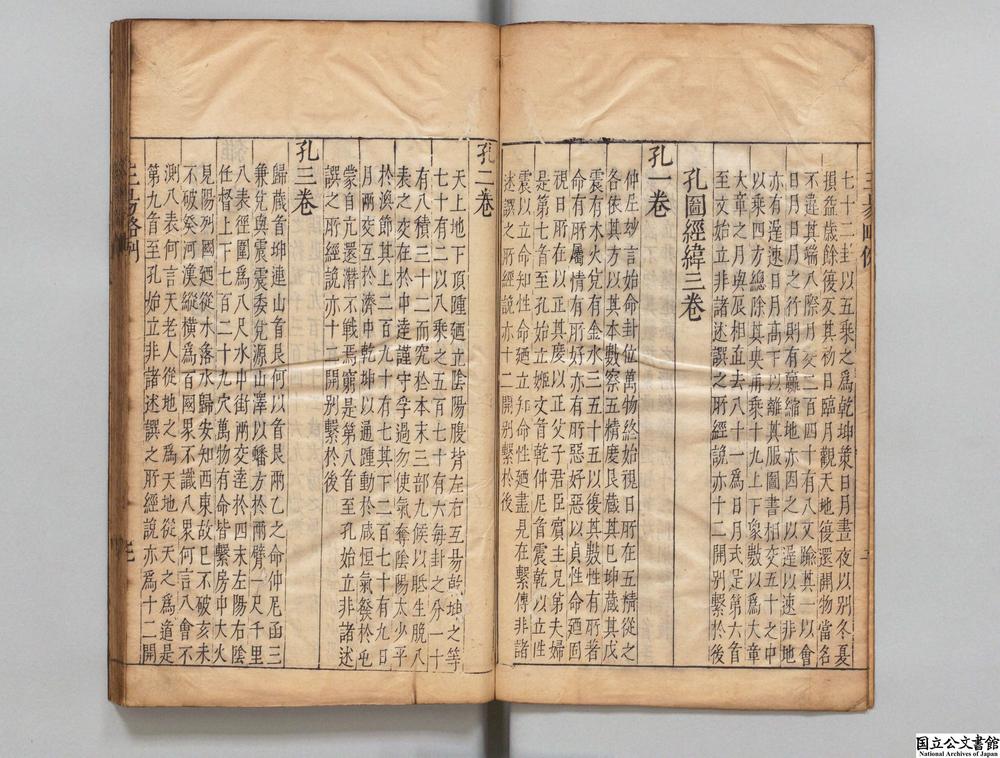 七十二卦以五乘之爲乾坤策日月晝夜以別冬夏
損益歲餘復反其初日臨月觀天地復還開物當名
不違其端八際月交二百四十有八交賒其一以會
日月日月之行則有贏縮地亦因之以遲以速非地
亦有遲速日月高下以離其服圖書相交五十之中
以乘四方總除其央再乘十九上下象數以爲大章
大章之月與辰相直去八十一爲日月式是第六首
至文始立非諸述譔之所經說亦十二開別繫於後
孔圖經緯三卷
孔一卷
仲丘妙言始命卦位萬物終始視日所在五精從之
各依其方以其本數察五情慶艮藏其巳坤藏其戊
震有木火兌有金水三五十五以後其數性有所著
命有所屬情有所好亦有所惡好惡以貞性命廼固
是第七首至孔始立姬文首乾仲尼首震乾以立性
震以立命知性命廼立知命性廼盡見在繫傳非諸
述譔之所經說亦十二開別繫於後
孔二卷
天上地下頂踵廼立陰陽腹背左右互易乾坤之等
七十有二以八乘之五百七十有六每卦之分一十
有八積三十二而究於本末三部九候以胝生腕八
表之交在於中逵謹守孚過勿使氣奪陰陽太少平
於渙節其上二百九十有七其下二百七十有九日
月兩交互於濟中乾坤以通踵動於咸恒氣發於屯
蒙首亢還潛不戰焉窮是第八首至孔始立非諸述
譔之所經說亦十二開別繫於後
孔三卷
歸藏首坤連山首艮何以首艮兩乙之命仲尼函三
兼兌與震震委兌源山澤以蟠方於兩臂一尺千里
八表徑圍爲八尺水中街兩交逵於四末左陽右陰
任督上下七百二十九穴萬物有命皆繫房中大火
見陽列國廼從水落水歸安知西東故巳不破亥未
不破癸河漢縱橫爲百國果不識八果何言八會不
測八表何言天老人從地之爲天地從天之爲道是
第九首至孔始立非諸述譔之所經說亦爲十二開
国立公文書館
National Archives of Japan